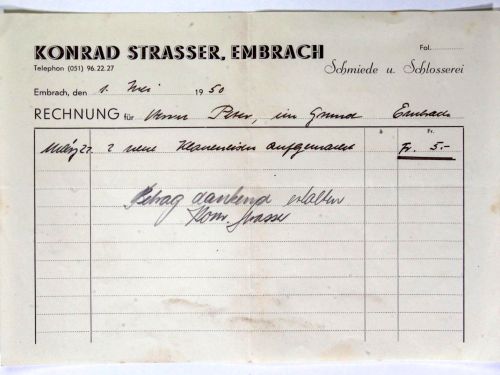 KONRAD STRASSER, EMBRACH
Fol.
Telephon (051) 96.22.27
Schmiede u. Schlosserei
Embrach, den 1. Mai 1950
RECHNUNG für Peter, im Grund Embrach
à Fr.
März 27. 2 neue aufgemacht Fr. 5.-
Betrag dankend erhalten
Konr. Strasser